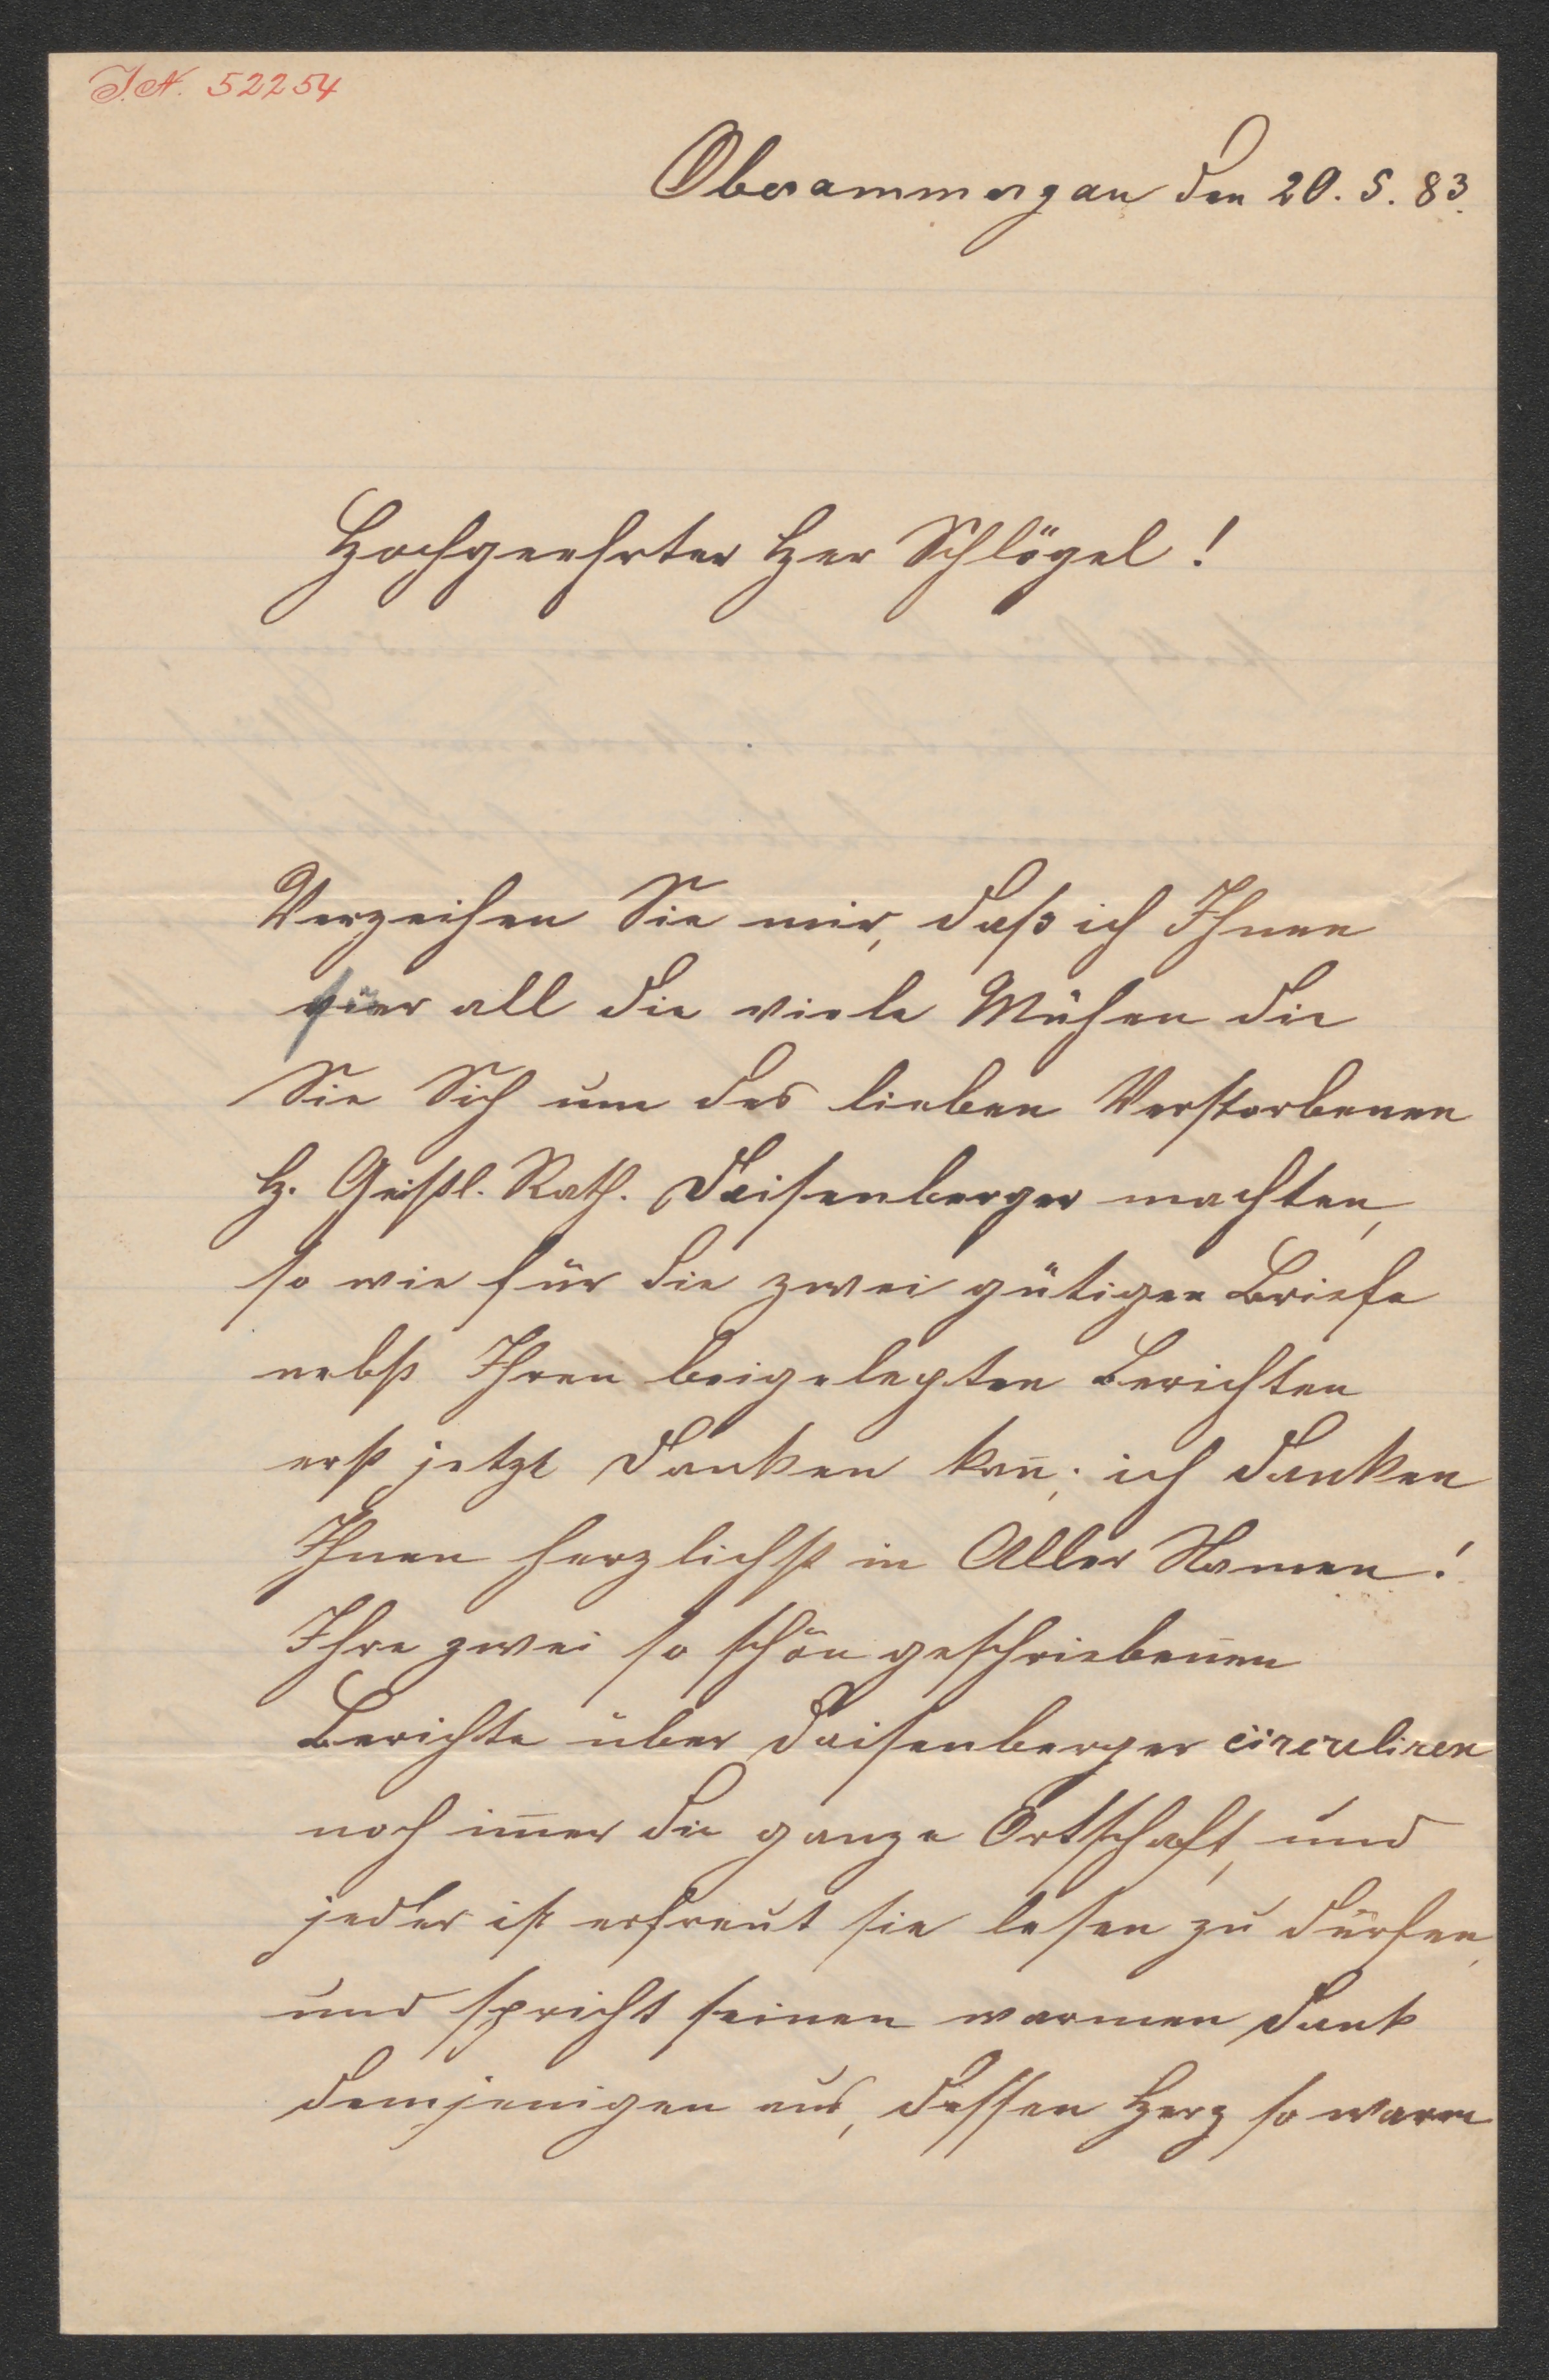 J.N. 52254
Oberammergau den 20. 5. 83.
Hochgeehrter Her Schlögel!
Verzeihen Sie mir, daß ich Ihnen
für all die viele Mühen die
Sie Sich um des lieben Verstorbenen
H. Geistl. Rath. Daisenberger machten,
so wie für die zwei gütigen Briefe
nebst Ihren beigelegten Berichten
erst jetzt danken kan̄; ich danken
Ihnen herzlichst in Aller Namen!
Ihre zwei so schön geschriebenen
Berichte über Daisenberger circuliren
noch im̄er die ganze Ortschaft, und
jeder ist erfreut sie lesen zu dürfen,
und spricht seinen warmen Dank
demjenigen aus, dessen Herz so warm